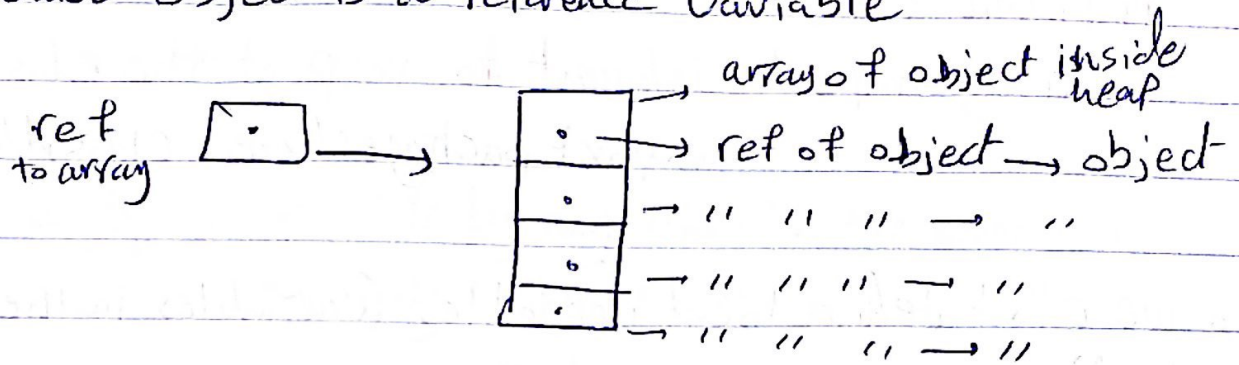 object is a reference variable
array of object inside
heap
ref
to array
ref of object → object
→ " " " → "
→ " " " → "
→ " " " → "